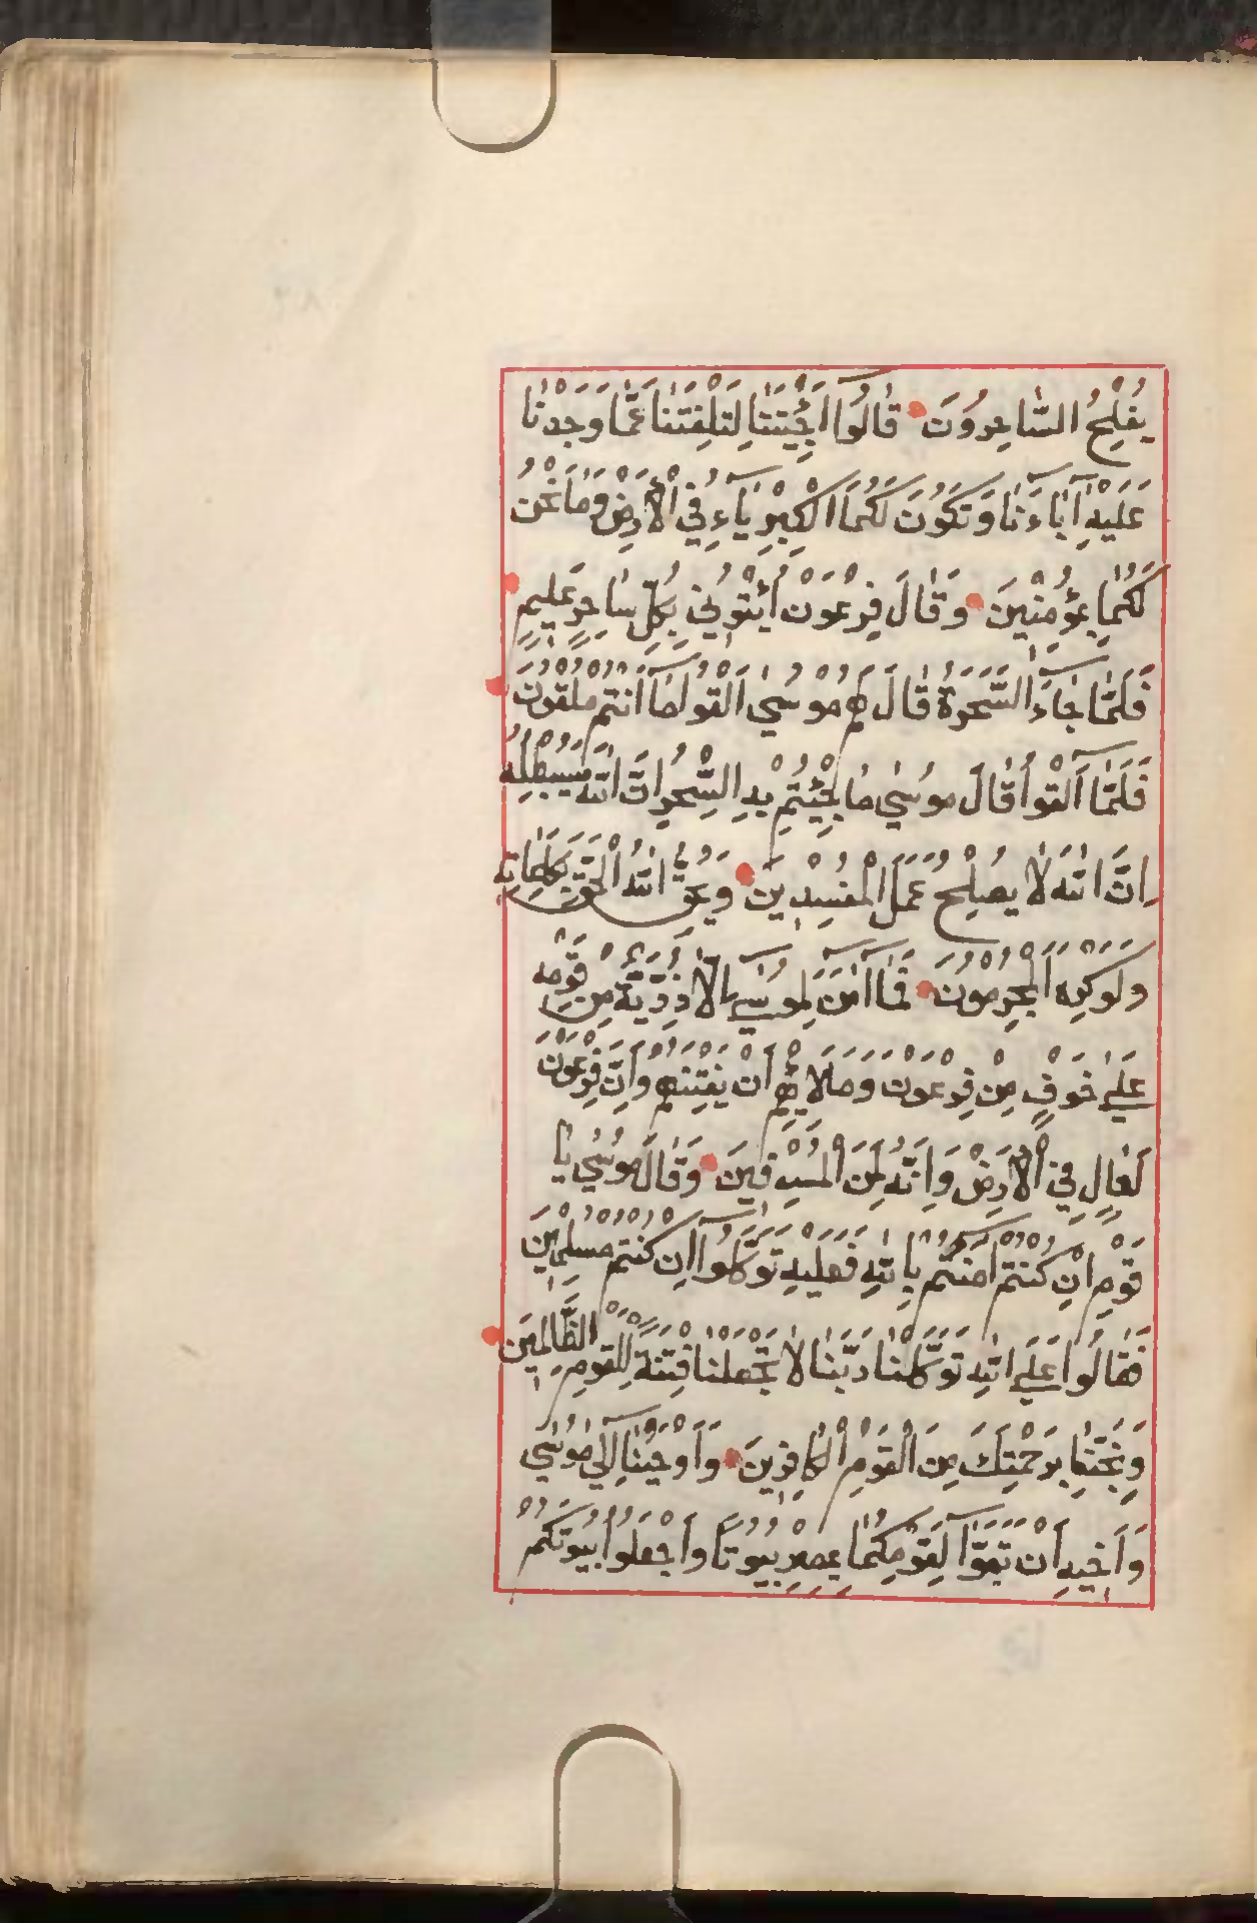 يُفْلِحُ السَّاحِرُونَ قَالُوا أَجِئْتَنَا لِتَلْفِتَنَا عَمَّا وَجَدْنَا
عَلَيْهِ آبَاءَنَا وَتَكُونَ لَكُمَا الْكِبْرِيَاءُ فِي الْأَرْضِ وَمَا نَحْنُ
لَكُمَا بِمُؤْمِنِينَ وَقَالَ فِرْعَوْنُ ائْتُونِي بِكُلِّ سَاحِرٍ عَلِيمٍ
فَلَمَّا جَاءَ السَّحَرَةُ قَالَ لَهُمْ مُوسَى أَلْقُوا مَا أَنْتُمْ مُلْقُونَ
فَلَمَّا أَلْقَوْا قَالَ مُوسَى مَا جِئْتُمْ بِهِ السِّحْرُ إِنَّ اللَّهَ سَيُبْطِلُهُ
إِنَّ اللَّهَ لَا يُصْلِحُ عَمَلَ الْمُفْسِدِينَ وَيُحِقُّ اللَّهُ الْحَقَّ بِكَلِمَاتِهِ
وَلَوْ كَرِهَ الْمُجْرِمُونَ فَمَا آمَنَ لِمُوسَى إِلَّا ذُرِّيَّةٌ مِنْ قَوْمِهِ
عَلَى خَوْفٍ مِنْ فِرْعَوْنَ وَمَلَائِهِمْ أَنْ يَفْتِنَهُمْ وَإِنَّ فِرْعَوْنَ
لَعَالٍ فِي الْأَرْضِ وَإِنَّهُ لَمِنَ الْمُسْرِفِينَ وَقَالَ مُوسَى يَا
قَوْمِ إِنْ كُنْتُمْ آمَنْتُمْ بِاللَّهِ فَعَلَيْهِ تَوَكَّلُوا إِنْ كُنْتُمْ مُسْلِمِينَ
فَقَالُوا عَلَى اللَّهِ تَوَكَّلْنَا رَبَّنَا لَا تَجْعَلْنَا فِتْنَةً لِلْقَوْمِ الظَّالِمِينَ
وَنَجِّنَا بِرَحْمَتِكَ مِنَ الْقَوْمِ الْكَافِرِينَ وَأَوْحَيْنَا إِلَى مُوسَى
وَأَخِيهِ أَنْ تَبَوَّآ لِقَوْمِكُمَا بِمِصْرَ بُيُوتًا وَاجْعَلُوا بُيُوتَكُمْ